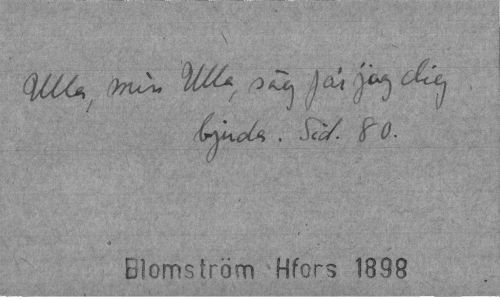 Ulla, min Ulla, säg får jag dig
bjuda. Sid. 80.
Blomström Hfors 1898